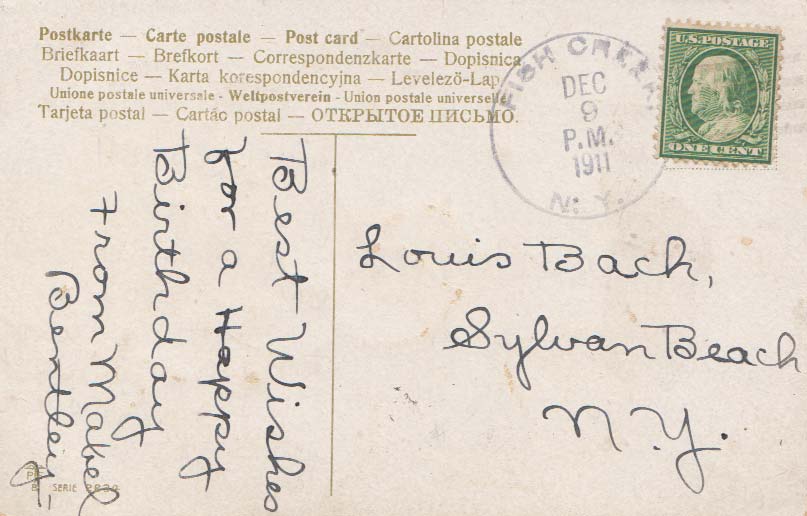 Postkarte — Carte postale — Post card — Cartolina postale
Briefkaart — Brefkort — Correspondenzkarte — Dopisnica
Dopisnice — Karta korespondencyjna — Levelező-Lap
Unione postale universale - Weltpostverein - Union postale universelle
Tarjeta postal — Cartác postal — ОТКРЫТОЕ ПИСЬМО.
FISH CREEK
DEC
9
P.M.
1911
N. Y.
U.S. POSTAGE
ONE CENT
Best Wishes
for a Happy
Birthday
From Mabel
Bentley
Louis Bach,
Sylvan Beach
N.Y.
SERIE